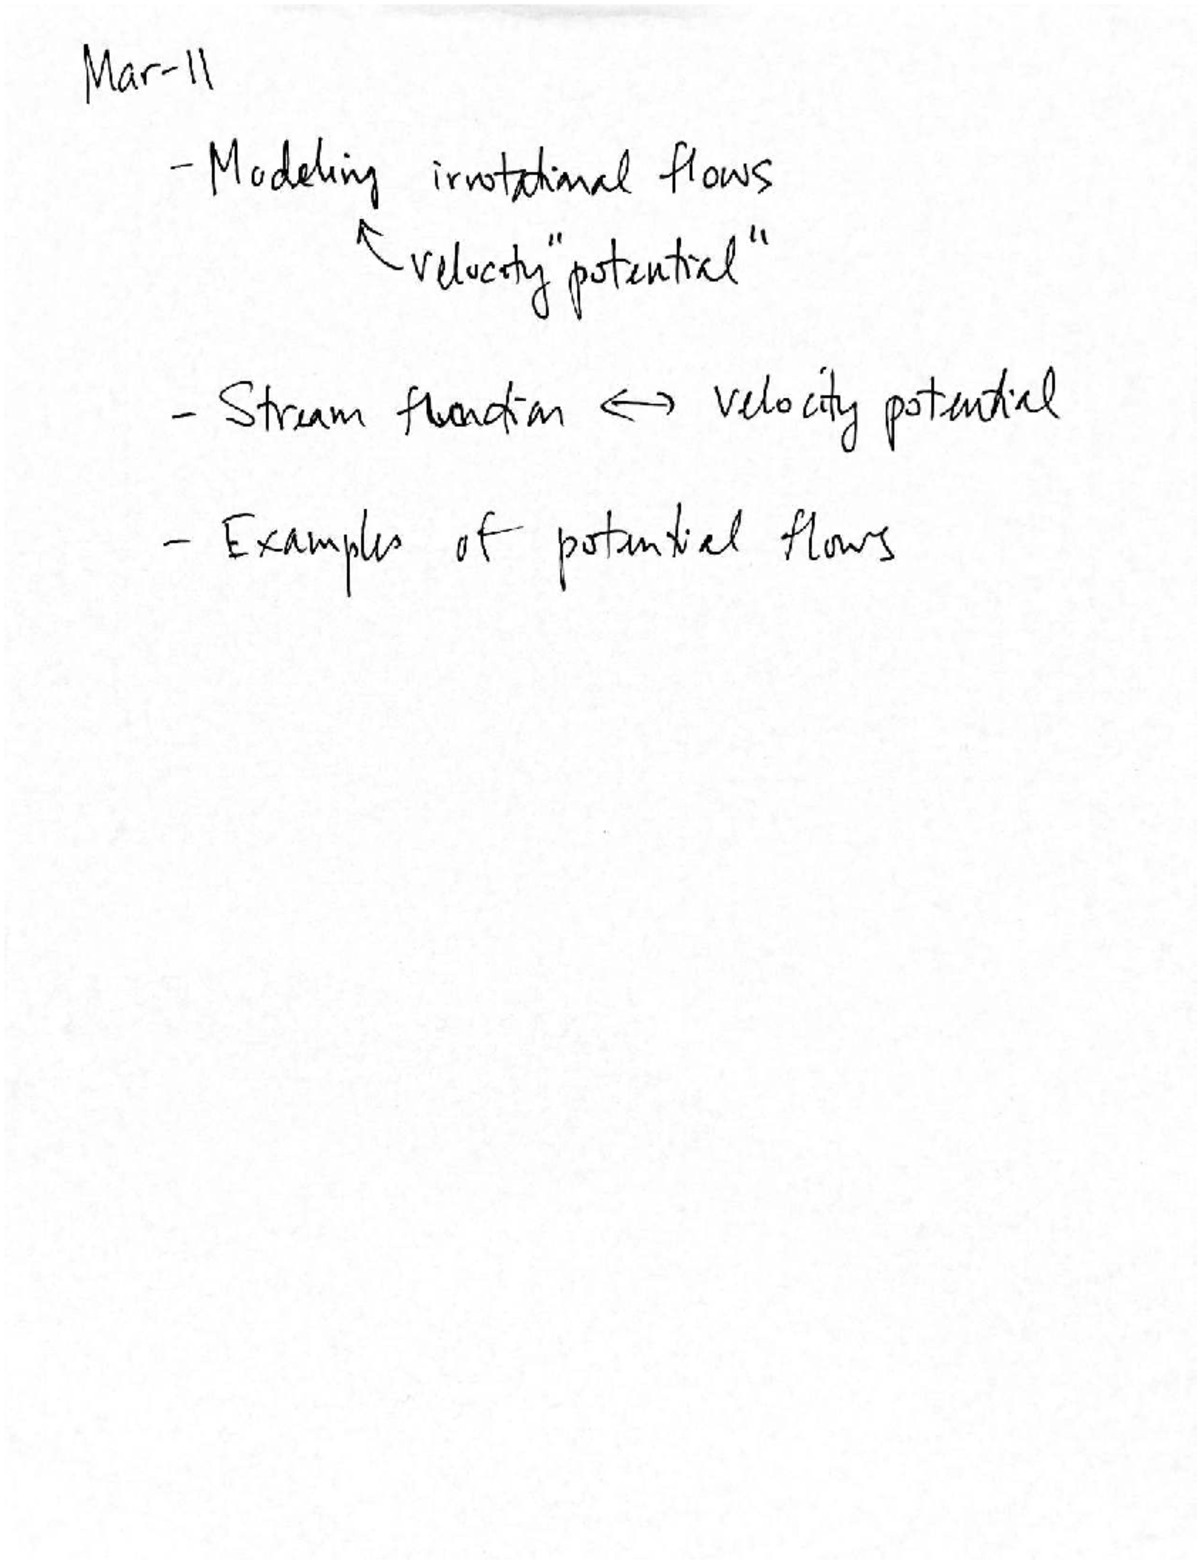 Mar-11
- Modeling irrotational flows
velocity "potential"
- Stream function ↔ velocity potential
- Examples of potential flows